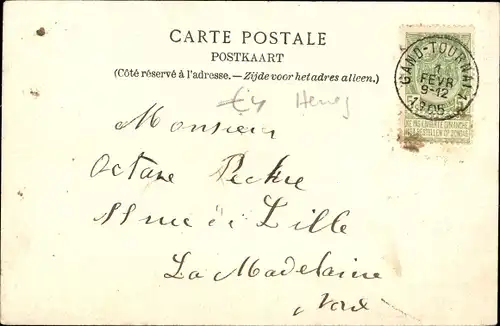 CARTE POSTALE
POSTKAART
(Côté réservé à l'adresse.—Zijde voor het adres alleen.)
GAND-TOURNAI
1
FEVR
9-12
1905
NE PAS LIVRER LE DIMANCHE
NIET BESTELLEN OP ZONDAG
€4
Monsieur
Octave
rue de Lille
La Madelaine
Nord